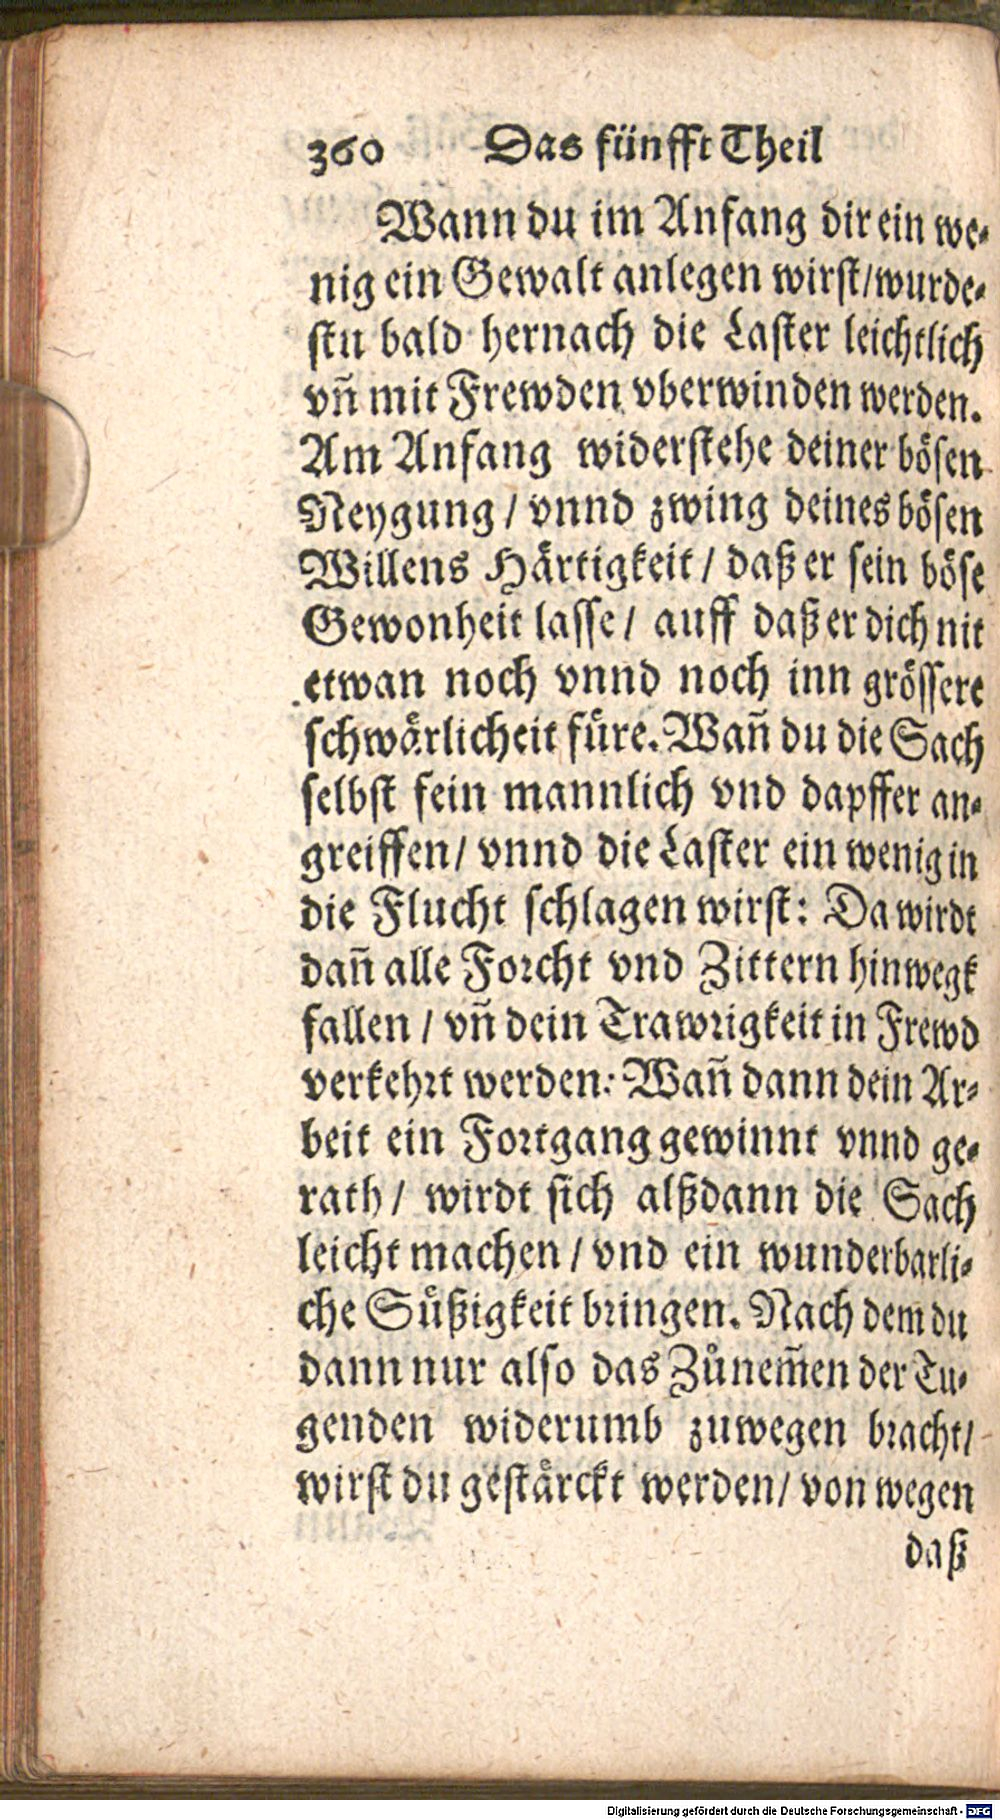 360 Das fünfft Theil
Wann du im Anfang dir ein we⸗
nig ein Gewalt anlegen wirst/wurde⸗
stu bald hernach die Laster leichtlich
vn̄ mit Frewden vberwinden werden.
Am Anfang widerstehe deiner bösen
Neygung / vnnd zwing deines bösen
Willens Härtigkeit / daß er sein böse
Gewonheit lasse / auff daß er dich nit
etwan noch vnnd noch inn grössere
schwårlicheit fůre. Wan̄ du die Sach
selbst fein mannlich vnd dapffer an⸗
greiffen / vnnd die Laster ein wenig in
die Flucht schlagen wirst: Da wirdt
dan̄ alle Forcht vnd Zittern hinwegk
fallen / vn̄ dein Trawrigkeit in Frewd
verkehrt werden: Wan̄ dann dein Ar⸗
beit ein Fortgang gewinnt vnnd ge⸗
rath / wirdt sich alßdann die Sach
leicht machen / vnd ein wunderbarli⸗
che Süßigkeit bringen. Nach dem du
dann nur also das Zůnem̄en der Tu⸗
genden widerumb zuwegen bracht/
wirst du gestärckt werden / von wegen
daß
Digitalisierung gefördert durch die Deutsche Forschungsgemeinschaft - DFG